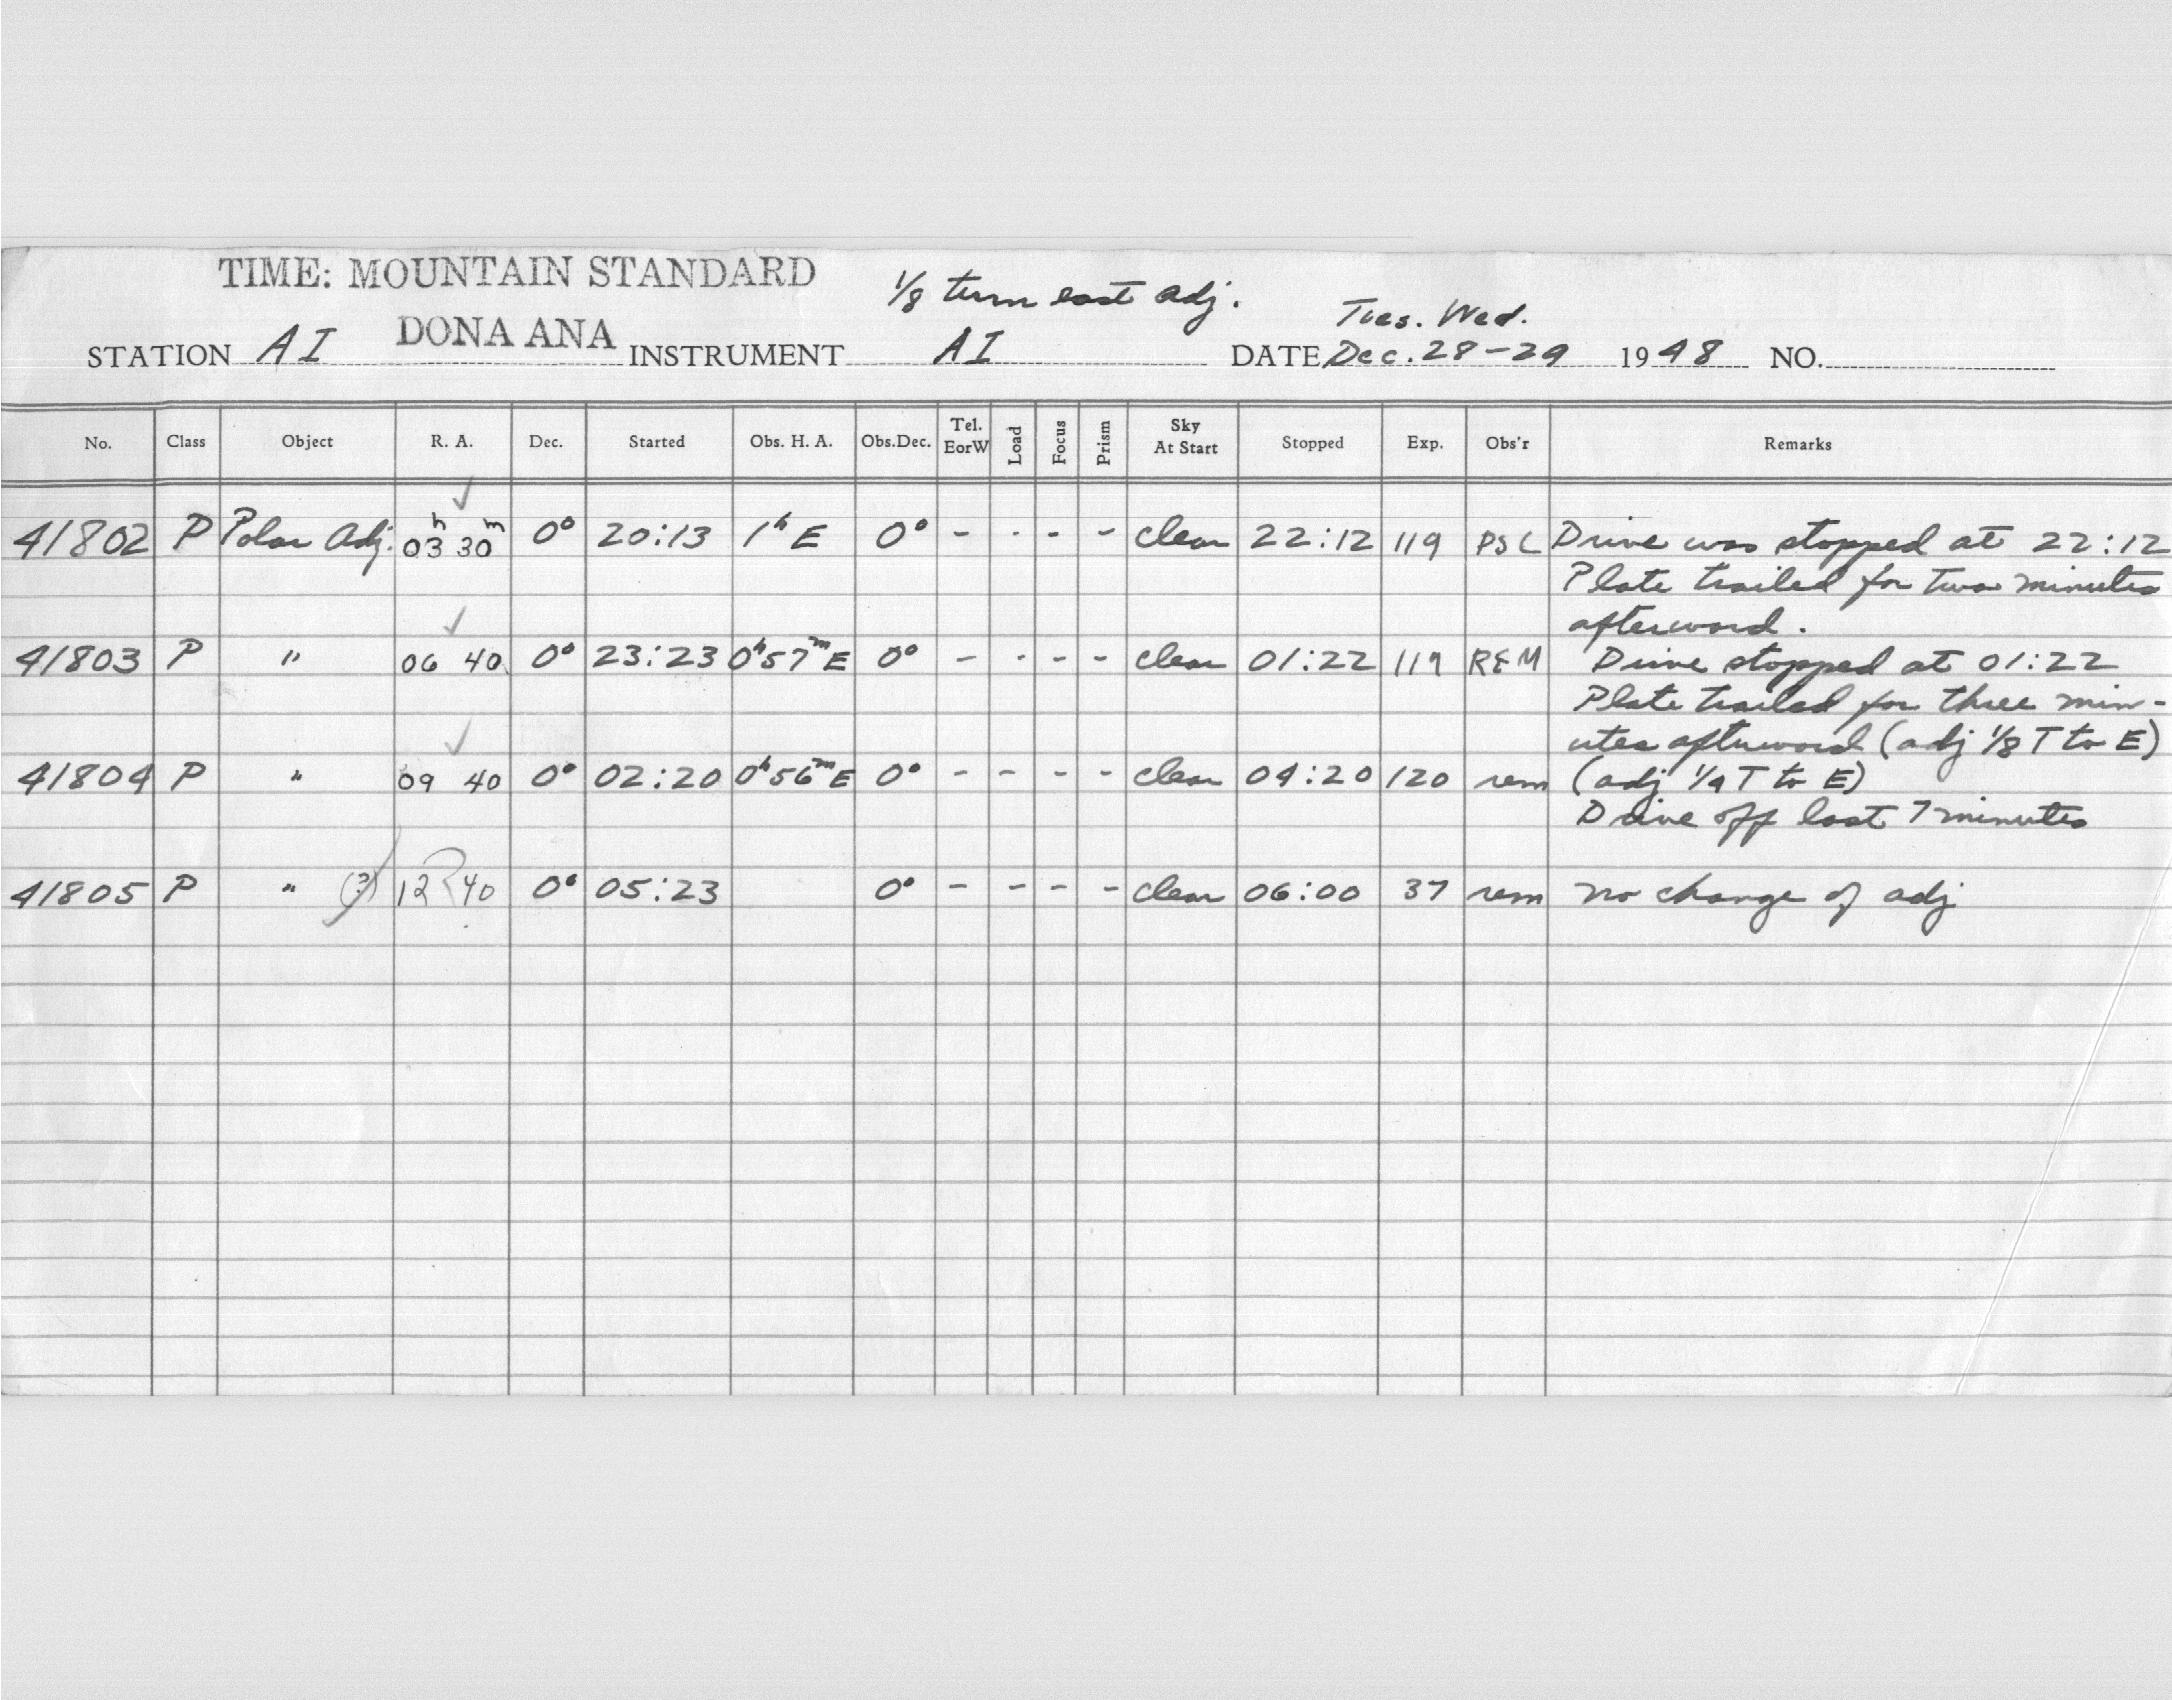 TIME: MOUNTAIN STANDARD
1/8 turn east adj.
Tues. Wed.
STATION AI DONA ANA INSTRUMENT AI DATE Dec. 28-29 1948 NO.
No. Class Object R. A. Dec. Started Obs. H. A. Obs.Dec. Tel. EorW Load Focus Prism Sky At Start Stopped Exp. Obs'r Remarks
41802 P Polar Adj. 03h 30m 0° 20:13 1h E 0° - . - - clear 22:12 119 PSL Drive was stopped at 22:12
Plate trailed for two minutes
afterword.
41803 P " 06 40 0° 23:23 0h57mE 0° - . - - clear 01:22 119 REM Drive stopped at 01:22
Plate trailed for three min-
utes afterword (adj 1/8 T to E)
41804 P " 09 40 0° 02:20 0h56mE 0° - - - - clear 04:20 120 rem (adj 1/4 T to E)
Drive off last 7 minutes
41805 P " (?) 12 40 0° 05:23 0° - - - - clear 06:00 37 rem no change of adj